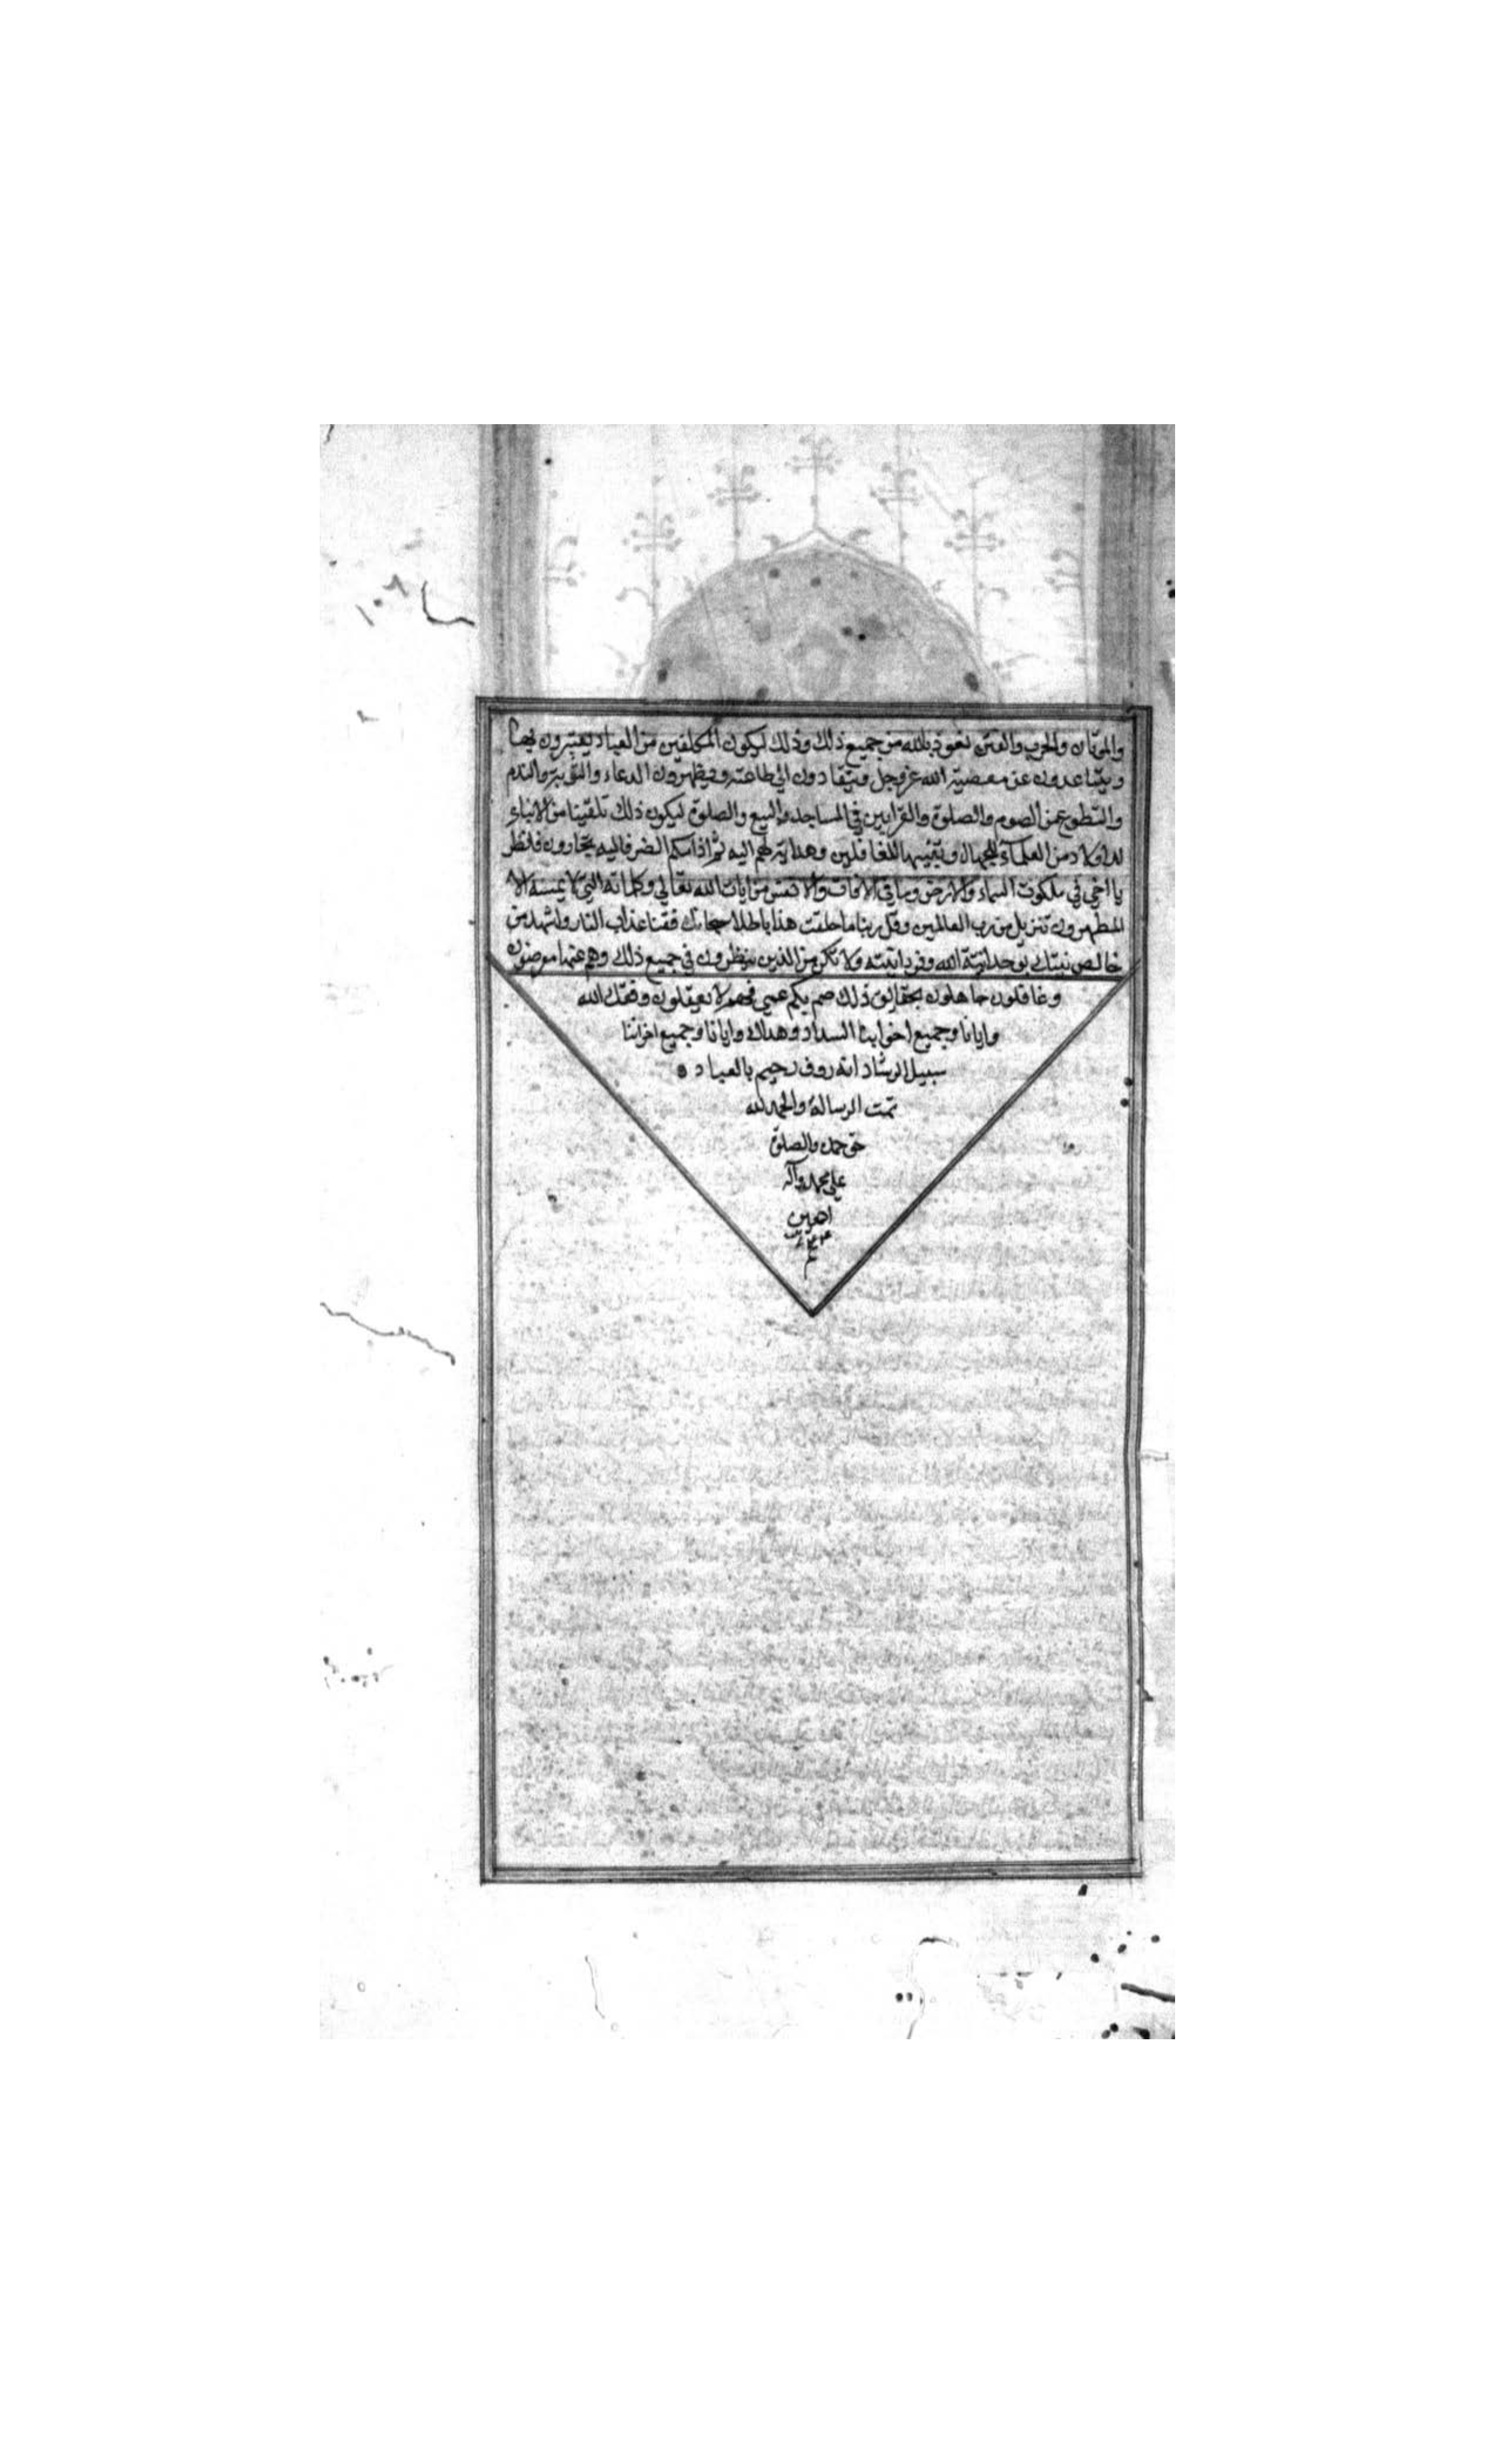 والموتان والحرب والفتن نعوذ بالله من جميع ذلك وذلك ليكون المكلفين من العباد يعتبرون بها
ويتباعدون عن معصية الله عز وجل وينقادون الي طاعته ويظهرون الدعاء والتوبة والندم
والتطوع من الصوم والصلوة والقرابين في المساجد والبيع والصلوة ليكون ذلك تلقينا من الانبياء
من العلماء للجهال وتنبيها للغافلين وهداية لهم اليه ثم اذا مسكم الضر فاليه تجارون فانظر
يا اخي في ملكوت السماء والارض وما في الافاق والانفس من ايات الله تعالي وكلماته التي لا يمسه الا
المطهرون تنزيل من رب العالمين وقل ربنا ما خلقت هذا باطلا سبحانك فقنا عذاب النار واشهد من
خالص نيتك بوحدانية الله وفردانيته ولا تكن من الذين ينظرون في جميع ذلك وهم عنها معرضون
وغافلون جاهلون بحقايق ذلك صم بكم عمي فهم لا يعقلون وفقك الله
وايانا وجميع اخواننا السداد وهداك وايانا وجميع اخواننا
سبيل الرشاد انه روف رحيم بالعباد
تمت الرسالة والحمد لله
حق حمده والصلوة
علي محمد وآله
اجمعين